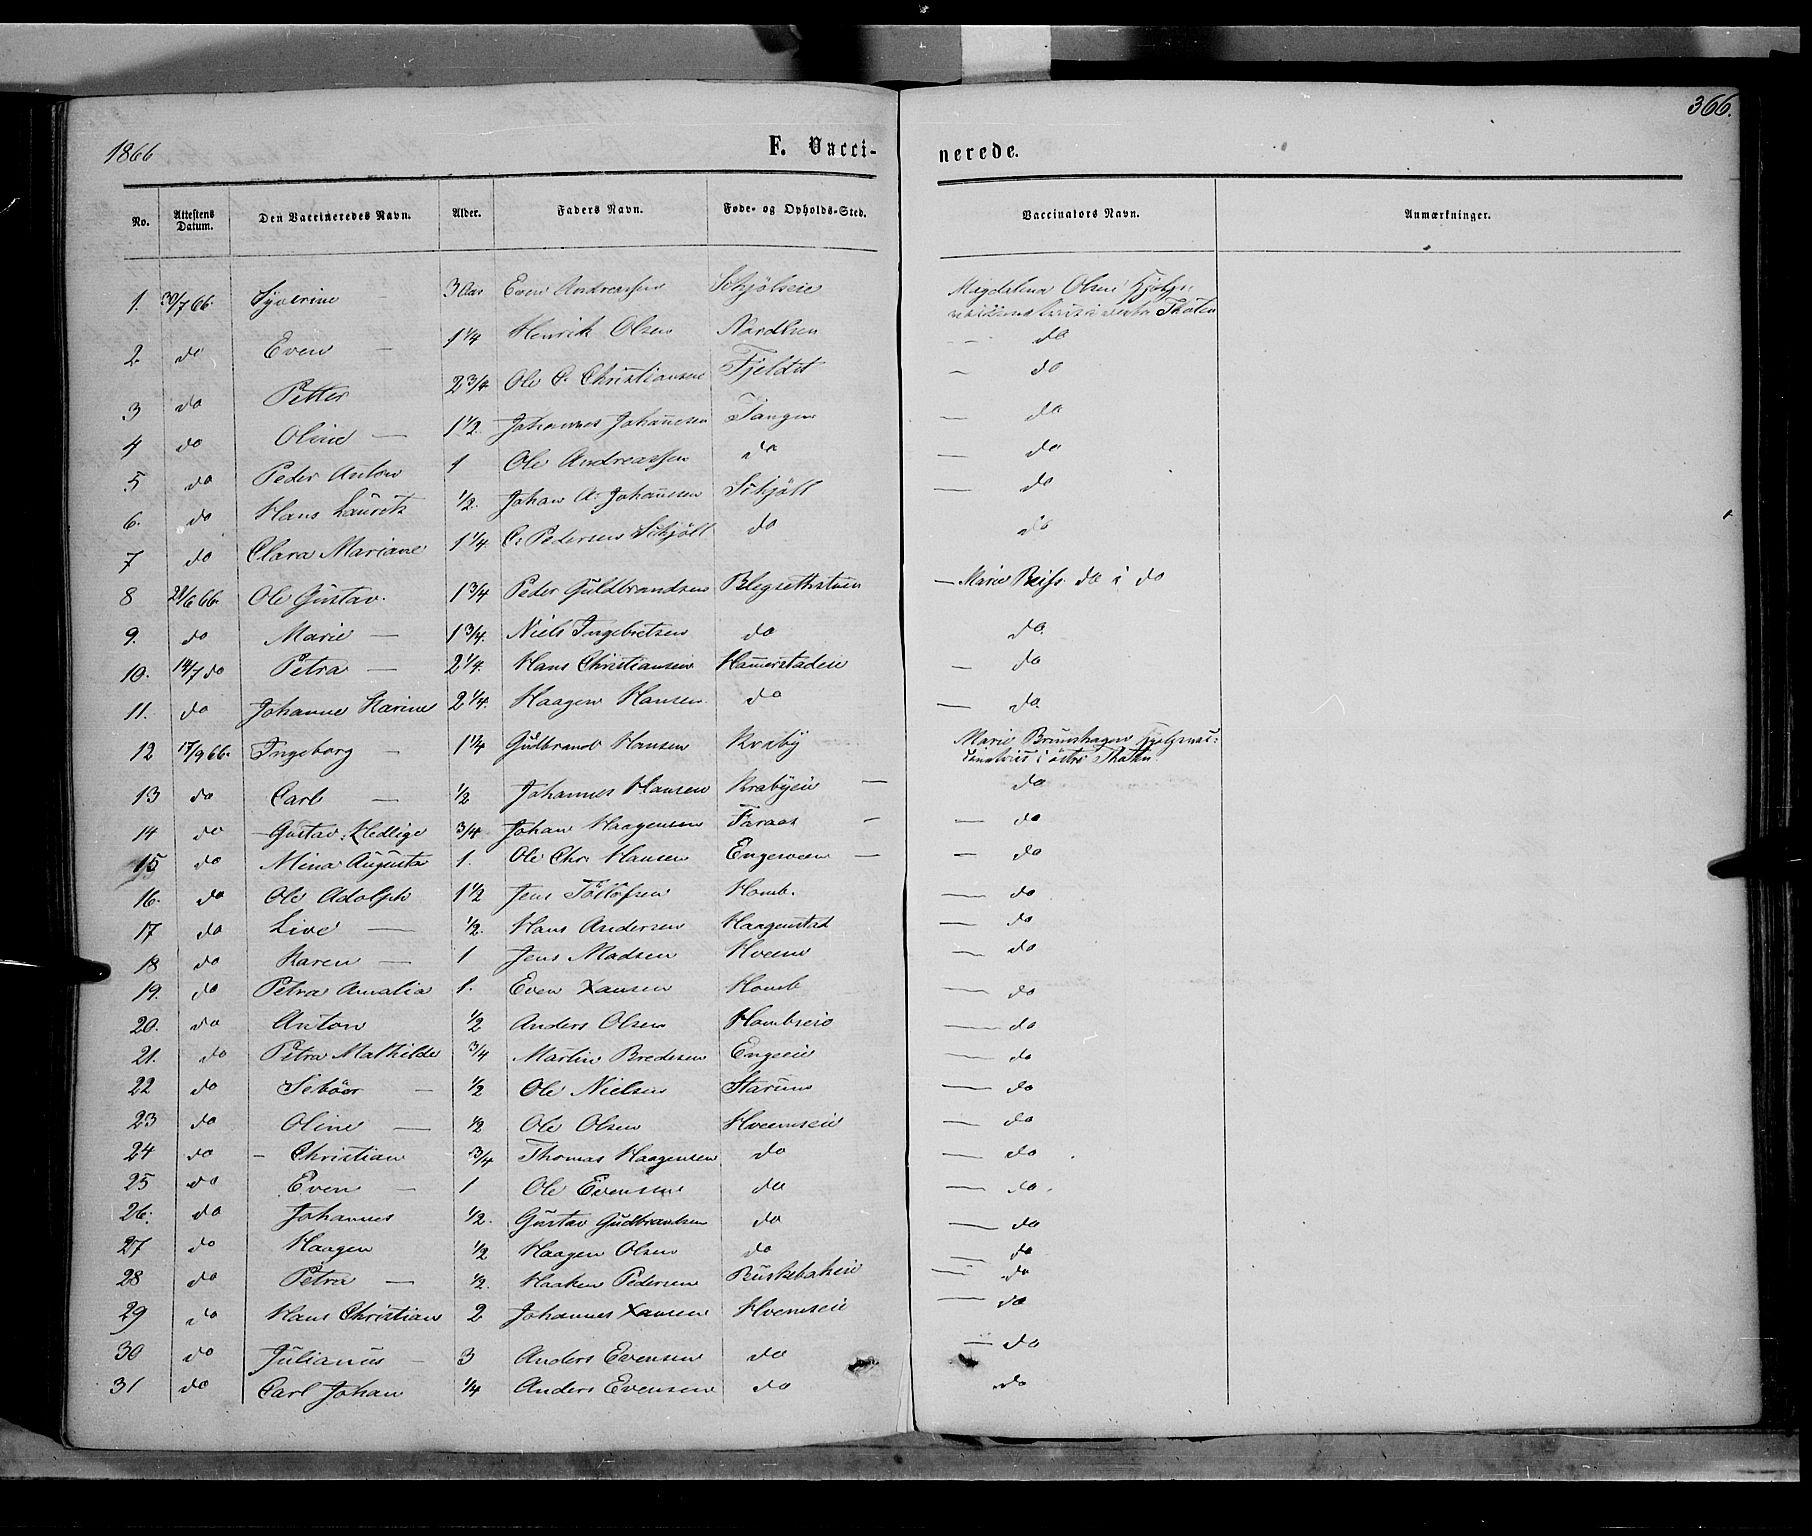 366.
1866 F. Vacci- nerede.
No. Attestens Datum. Den Vaccineredes Navn. Alder. Faders Navn. Føde- og Opholds-Sted. Vaccinators Navn. Anmærkninger.
1. 30/7 66. Syverine 3 Aar Even Andreassen Schjølseie Magdalena Olsen Hjelpe-
vestre Thoten
2. do Even — 1 1/4 Henrik Olsen Nordlien — do
3 do Petter 2 3/4 Ole P. Christiansen Fjeldet — do
4 do Oline — 1 1/2. Johannes Johannesen Tangen — do
5 do Peder Anton 1 Ole Andreassen do — do
6. do Hans Lauritz 1/2. Johan A. Johannesen Schjøll — do
7 do Clara Mariane 1 1/4 C. Pedersen Schjøll do do
8 21/6 66. Ole Gustav. 1 3/4 Peder Guldbrandsen Blegsethstuen — Marie Reiss. do i do
9. do Marie — 1 3/4. Niels Ingebretsen do do.
10. 14/7 do Petra — 2 1/4. Hans Christiansen Hammerstadeie — do
11. do Johanne Karine 2 1/4. Haagen Hansen. do — do.
12 17/9 66. Ingeborg — 1 1/4 Gudbrand Hansen Kraby Marie Brunshagen Hjelpevac-
cinatrice i østre Thoten
13 do Carl — 1/2 Johannes Hansen Krabyeie — do
14 do — Gustav Hedlige 3/4 Johan Haagensen Faraas — — do
15 do Mina Augusta 1. Ole Chr. Hansen Engeveien — — do
16. do Ole Adolph 1 1/2 Jens Tollofsen Homb. — do
17 do Live — 1/2. Hans Andersen Haagenstad — do
18 do Karen — 1 Jens Madsen Hveem — do
19. do Petra Amalia 1. Even Hansen Homb — do
20. do Anton 1/2 Anders Olsen Hombseie — do
21. do Petra Mathilde 3/4 Martin Bredesen Engeeie — do
22 do — 1/2 Ole Nielsen Starum — do
23 do Oline — 1/2 Ole Olsen Hveemseie — do
24 do — Christian 3/4 Thomas Haagensen do — do
25 do Even — 1 Ole Evensen do — do.
26. do Johannes 1/2. Gustav Gudbrandsen do — do
27 do Haagen 1/2 Haagen Olsen do — do
28 do Petra — 1/2. Haaken Pedersen Ruskebakeie — do
29 do Hans Christian 2 Johannes Hansen Hveemseie — do
30 do Julianus — 3 Anders Evensen do — do
31 do Carl Johan 1/4 Anders Evensen do do